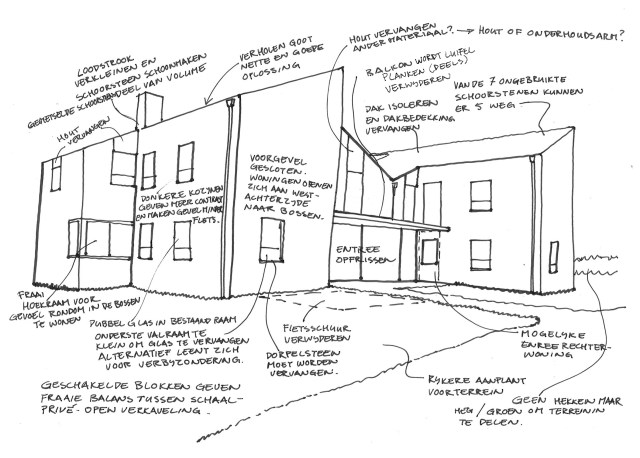 LOODSTROOK
VERKLEINEN EN
SCHOORSTEEN SCHOONMAKEN
GEMETSELDE SCHOORSTEEN DEEL VAN VOLUME
VERHOLEN GOOT
NETTE EN GOEDE
OPLOSSING
HOUT VERVANGEN
ANDER MATERIAAL? → HOUT OF ONDERHOUDSARM?
BALKON WORDT LUIFEL
PLANKEN (DEELS)
VERWIJDEREN
DAK ISOLEREN
EN DAKBEDEKKING
VERVANGEN
VAN DE 7 ONGEBRUIKTE
SCHOORSTENEN KUNNEN
ER 5 WEG
HOUT
VERVANGEN
DONKERE KOZIJNEN
GEVEN MEER CONTRAST
EN MAKEN GEVEL MINDER
FLETS.
VOORGEVEL
GESLOTEN.
WONINGEN OPENEN
ZICH AAN WEST-
ACHTERZIJDE
NAAR BOSSEN.
ENTREE
OPFRISSEN
FRAAI
HOEKRAAM VOOR
GEVOEL RONDOM IN DE BOSSEN
TE WONEN
DUBBEL GLAS IN BESTAAND RAAM
ONDERSTE VALRAAM TE
KLEIN OM GLAS TE VERVANGEN
ALTERNATIEF LEENT ZICH
VOOR VERBIJZONDERING.
FIETSSCHUUR
VERWIJDEREN
DORPELSTEEN
MOET WORDEN
VERVANGEN.
MOGELIJKE
ENREE RECHTER-
WONING
RIJKERE AANPLANT
VOORTERREIN
GEEN HEKKEIN MAAR
HEG / GROEN OM TERREIN IN
TE DELEN.
GESCHAKELDE BLOKKEN GEVEN
FRAAIE BALANS TUSSEN SCHAAL-
PRIVÉ - OPEN VERKAVELING.